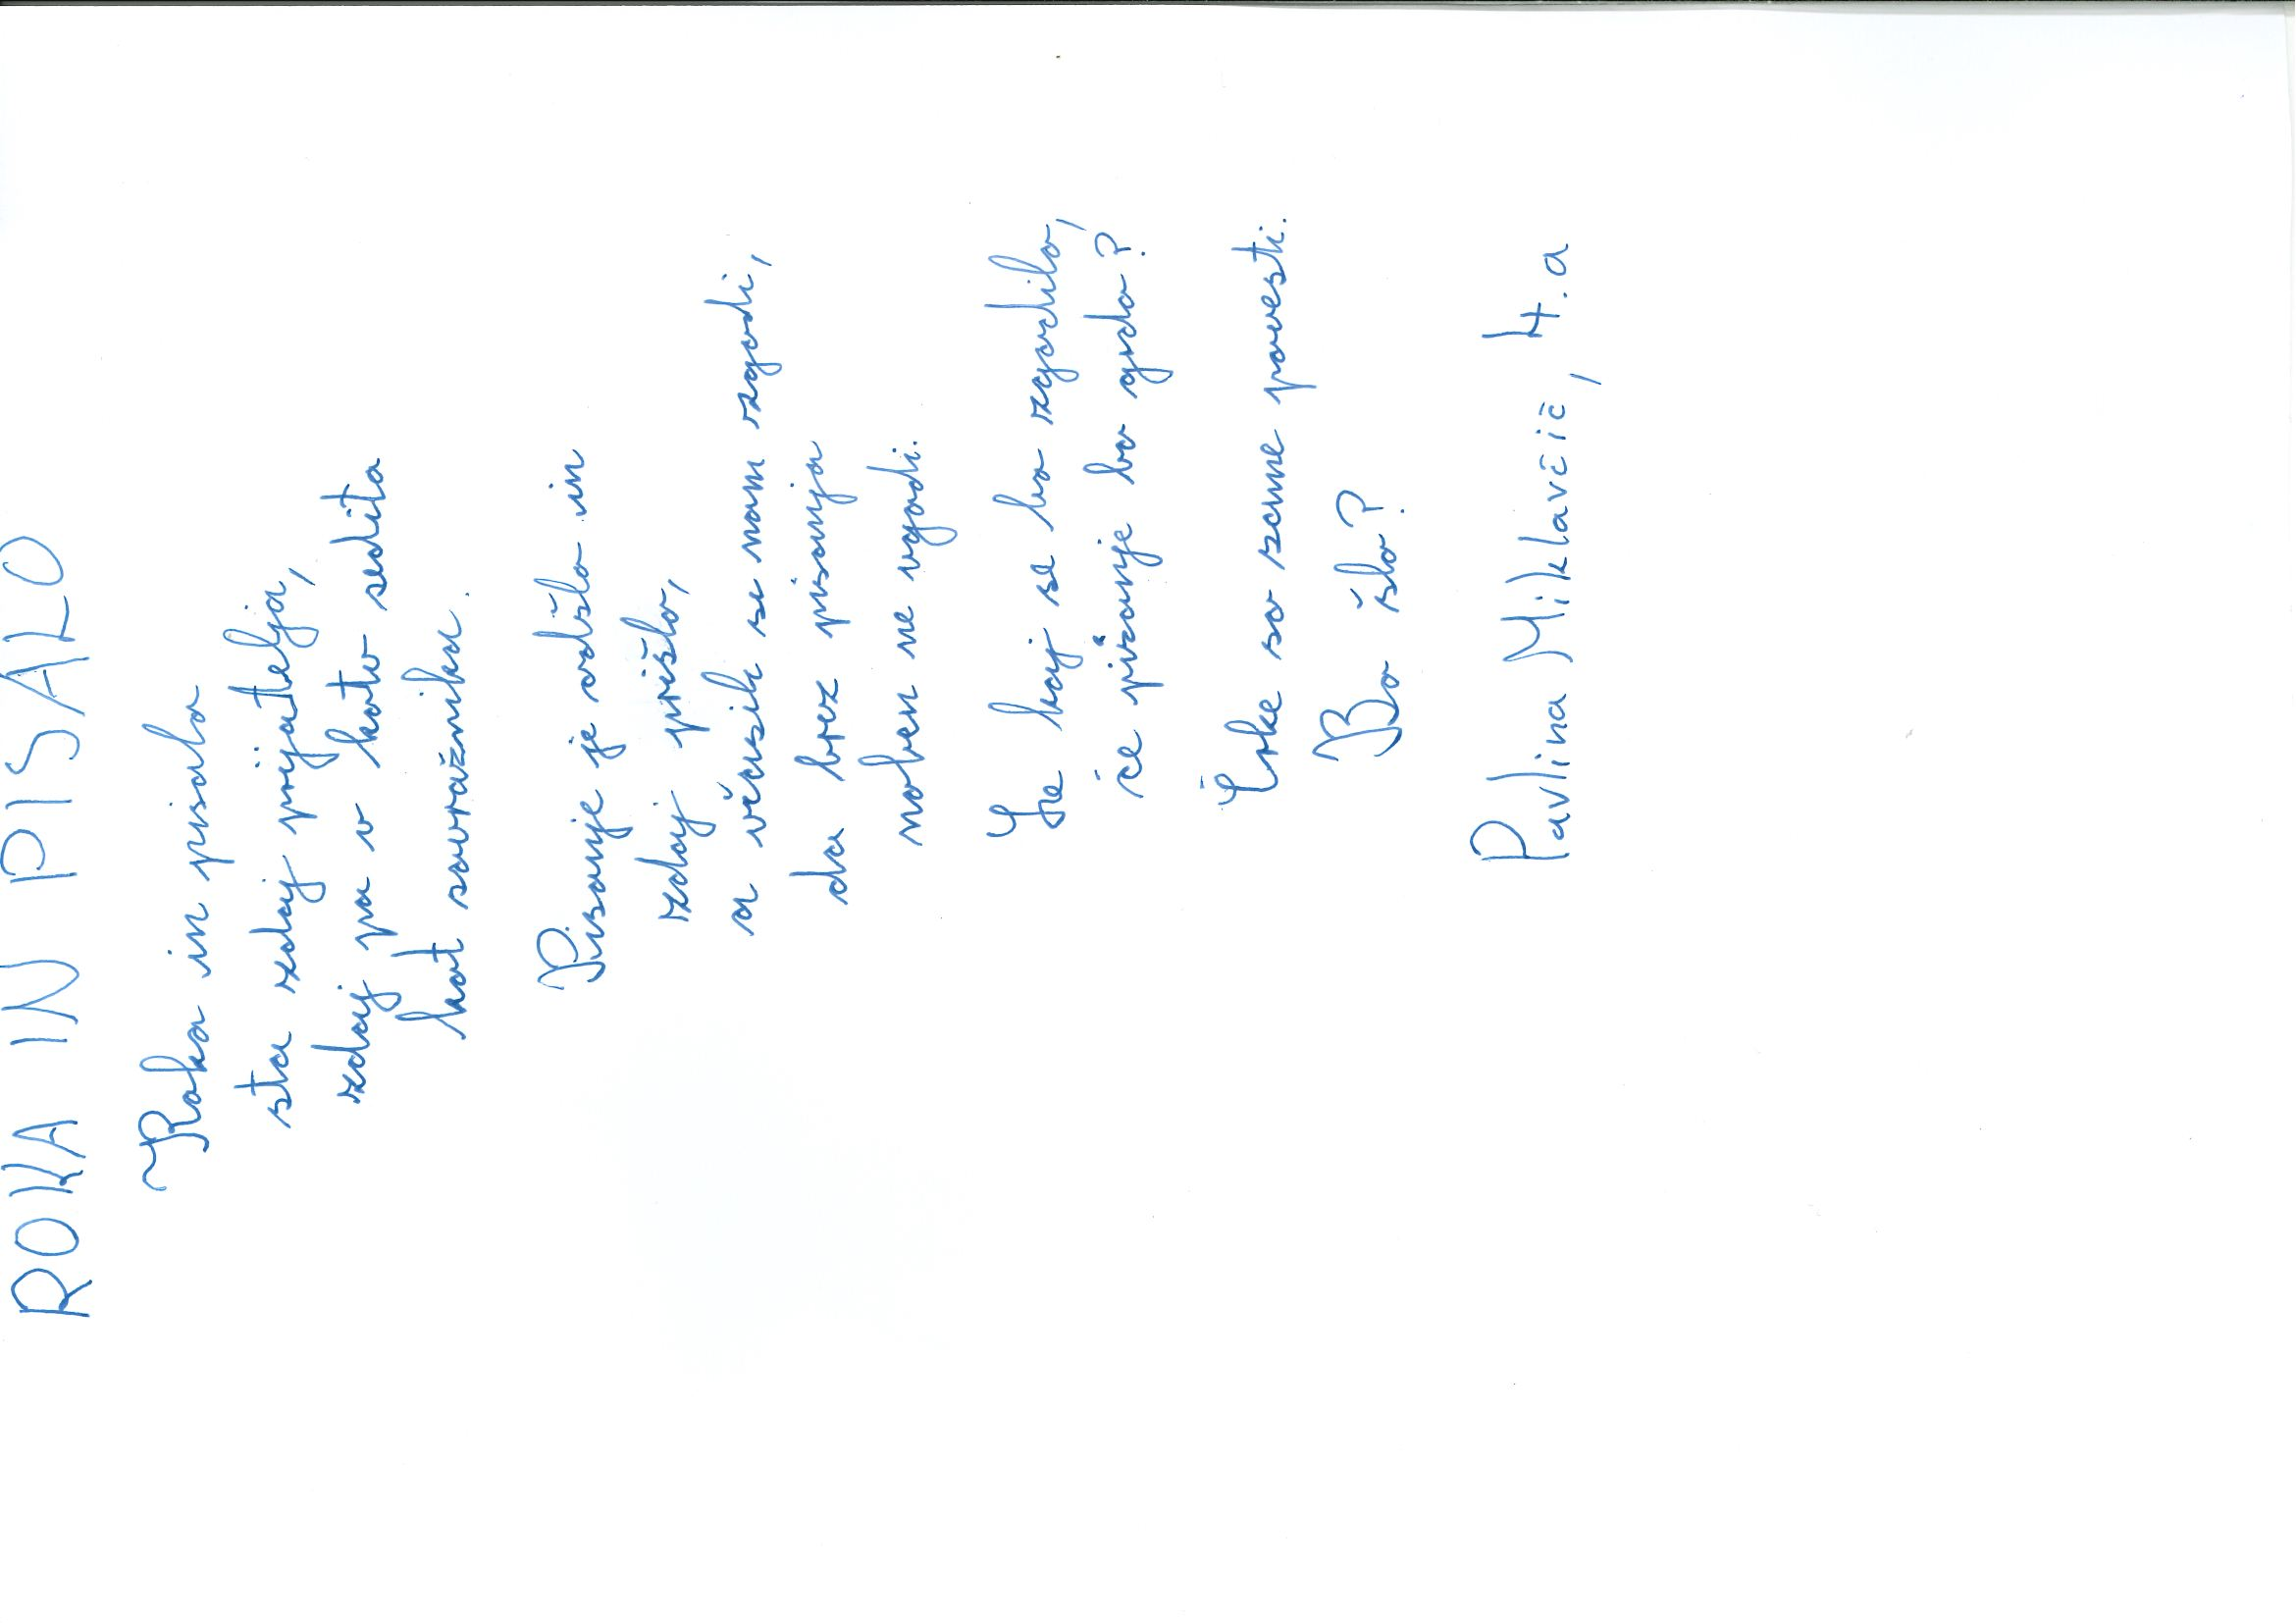 ROKA IN PISALO
Roka in pisalo
sta zdaj prijatelja,
zdaj pa v kotu sedita
kot sovražnika.
Pisanje je odšlo in
zdaj prišlo,
a včasih se nam zgodi,
da brez pisanja
noben ne ugodi.
Le kaj se bo zgodilo,
če pisanje bo grdo?
Črke so same povesti.
Bo šlo?
Pavlina Miklavčič, 4.a